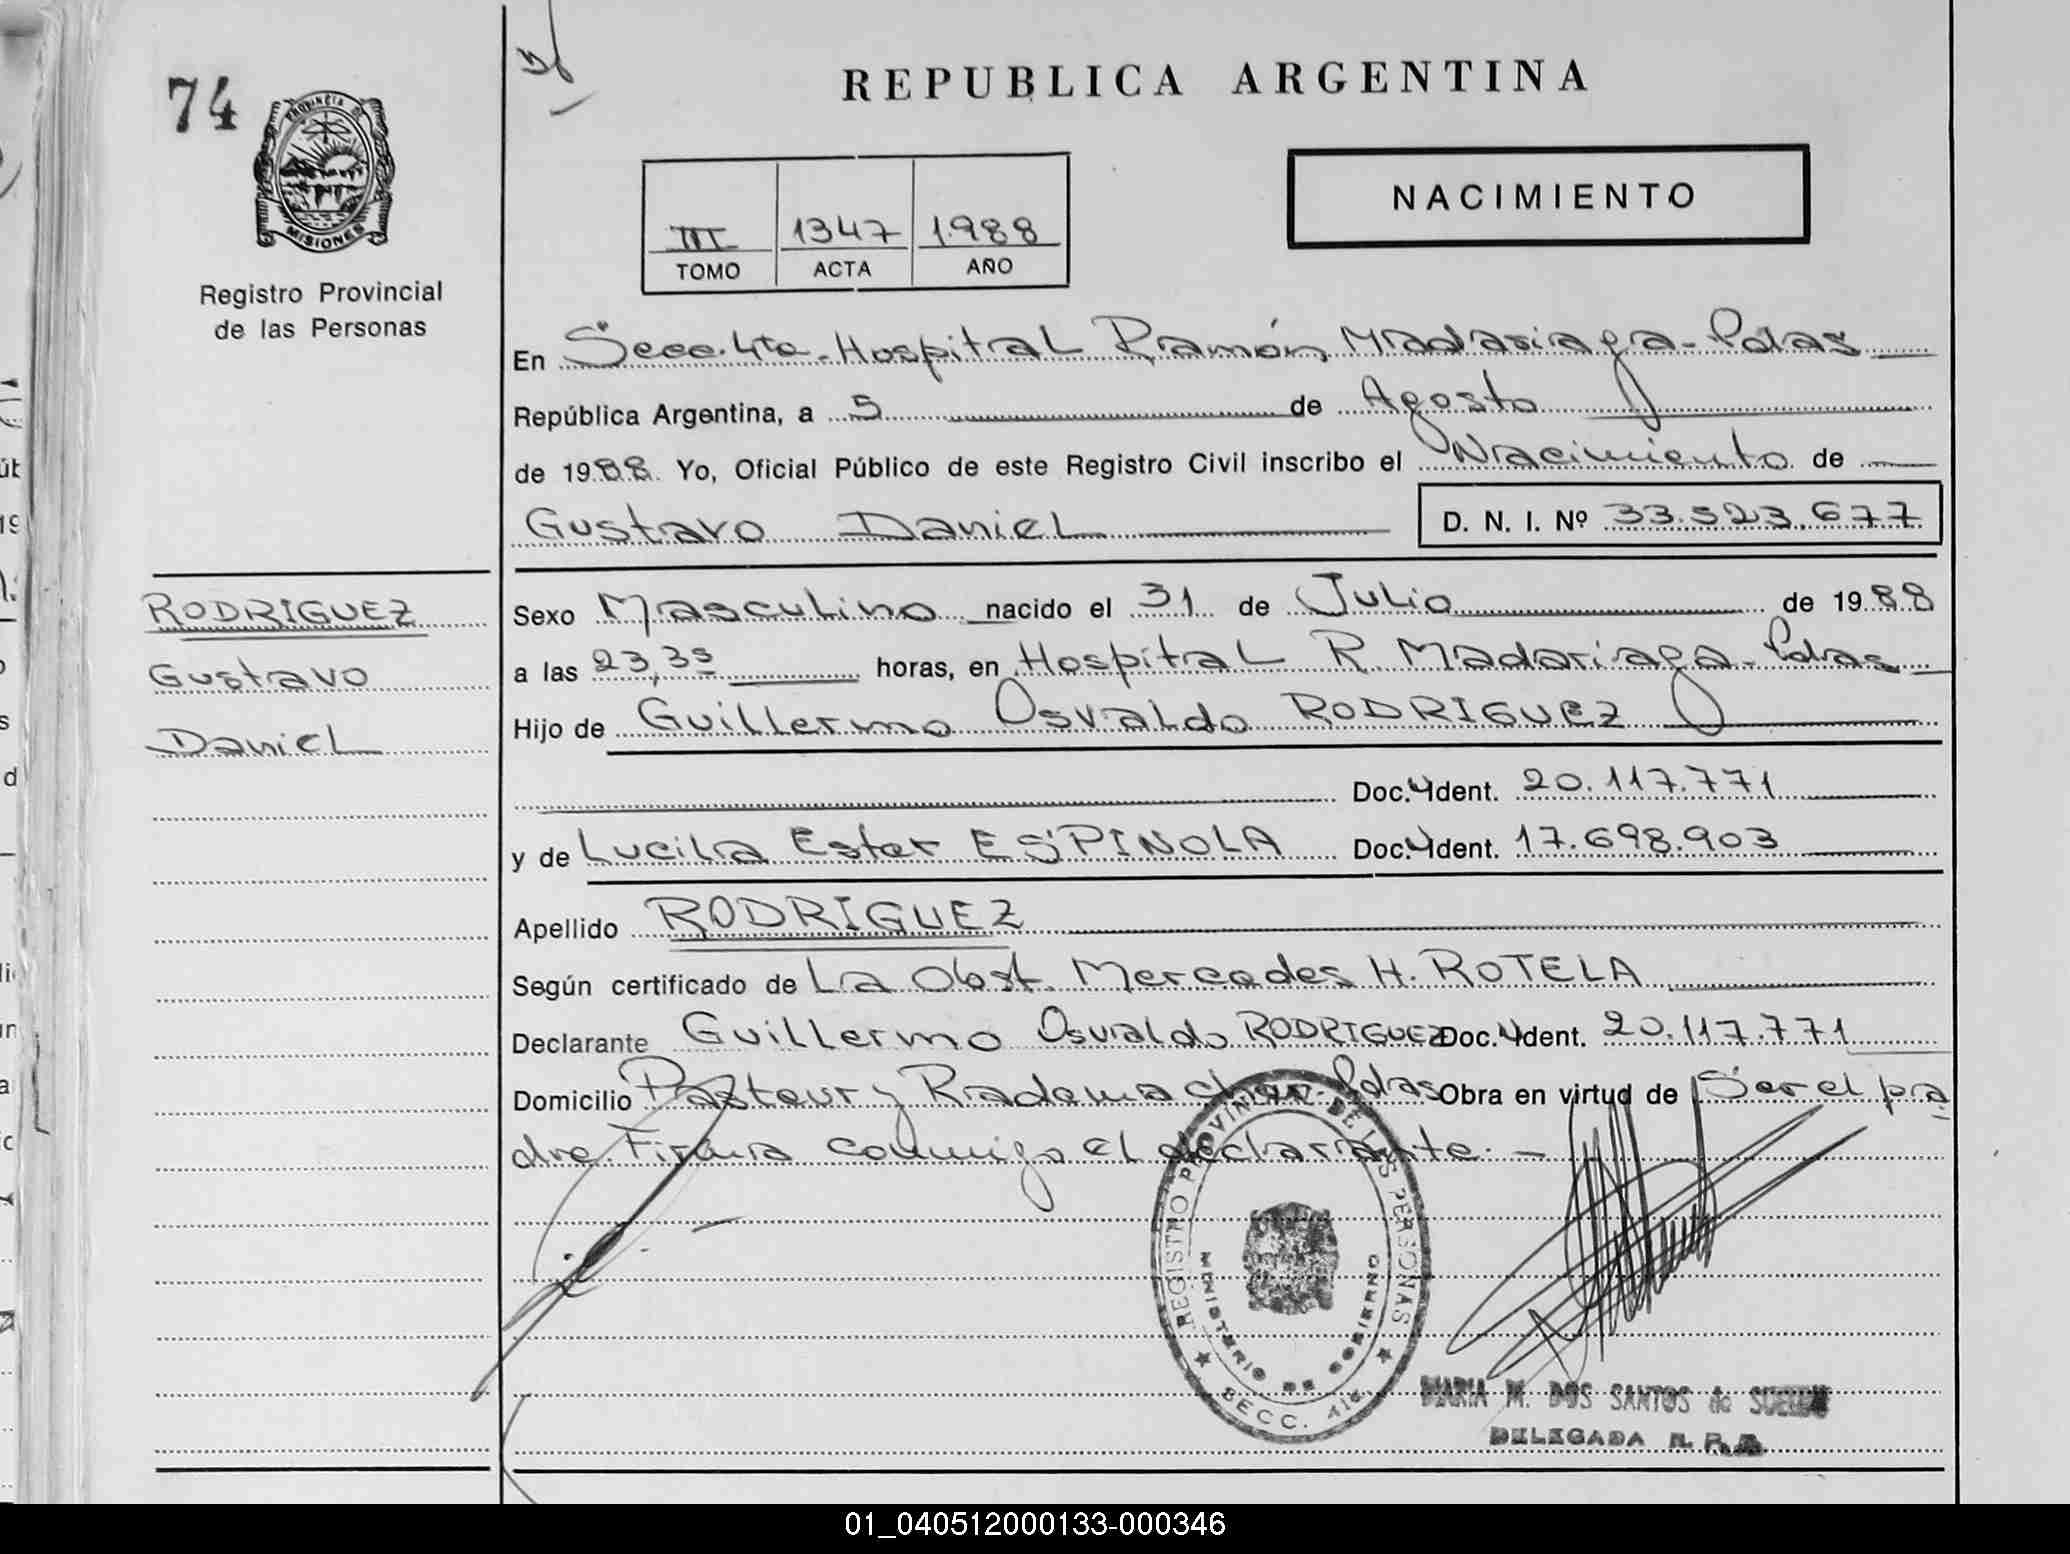 74
PROVINCIA DE
MISIONES
Registro Provincial
de las Personas
REPUBLICA ARGENTINA
NACIMIENTO
III 1347 1988
TOMO ACTA AÑO
En Secc. 4ta. Hospital Ramón Madariaga - Pdas
República Argentina, a 5 de Agosto
de 1988. Yo, Oficial Público de este Registro Civil inscribo el Nacimiento de
Gustavo Daniel D. N. I. Nº 33.523.677
RODRIGUEZ
Gustavo
Daniel
Sexo Masculino nacido el 31 de Julio de 1988
a las 23,35 horas, en Hospital R. Madariaga - Pdas
Hijo de Guillermo Osvaldo RODRIGUEZ
Doc. Ident. 20.117.771
y de Lucila Ester ESPINOLA Doc. Ident. 17.698.903
Apellido RODRIGUEZ
Según certificado de La Obst. Mercedes H. ROTELA
Declarante Guillermo Osvaldo RODRIGUEZ Doc. Ident. 20.117.771
Domicilio Pasteur y Rademacher - Pdas Obra en virtud de Ser el pa
dre. Firma conmigo el declarante. -
REGISTRO PROVINCIAL DE LAS PERSONAS
MINISTERIO DE GOBIERNO
SECC. 4ta.
MARIA M. DOS SANTOS de
DELEGADA R. P. P.
01_040512000133-000346